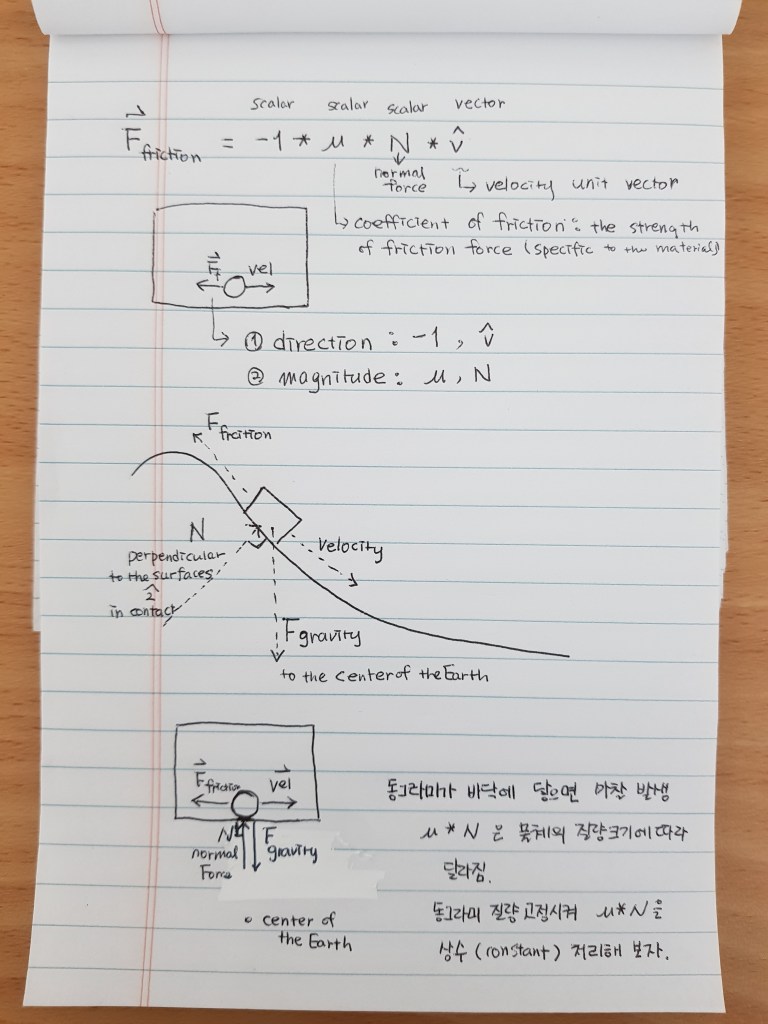 scalar scalar scalar vector
F⃗friction = -1 * μ * N * v̂
normal force
↳ velocity unit vector
↳ coefficient of friction : the strength
of friction force (specific to the materials)
F⃗f vel
↳ ① direction : -1 , v̂
② magnitude : μ , N
Ffricition
N
perpendicular
to the surfaces
^
2
in contact
Velocity
Fgravity
to the center of the Earth
F⃗friction vel
N F
normal gravity
Force
center of
the Earth
동그라미가 바닥에 닿으면 마찰 발생
μ * N 은 물체의 질량크기에 따라
달라짐.
동그라미 질량 고정시켜 μ*N을
상수 (constant) 처리해 보자.